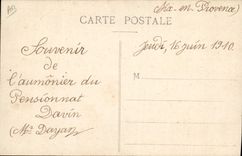 (Aix-en-Provence)
CARTE POSTALE
Souvenir
de
l'aumônier du
Pensionnat
Davin
(Mr Dayaz)
Jeudi, 16 juin 1910
M